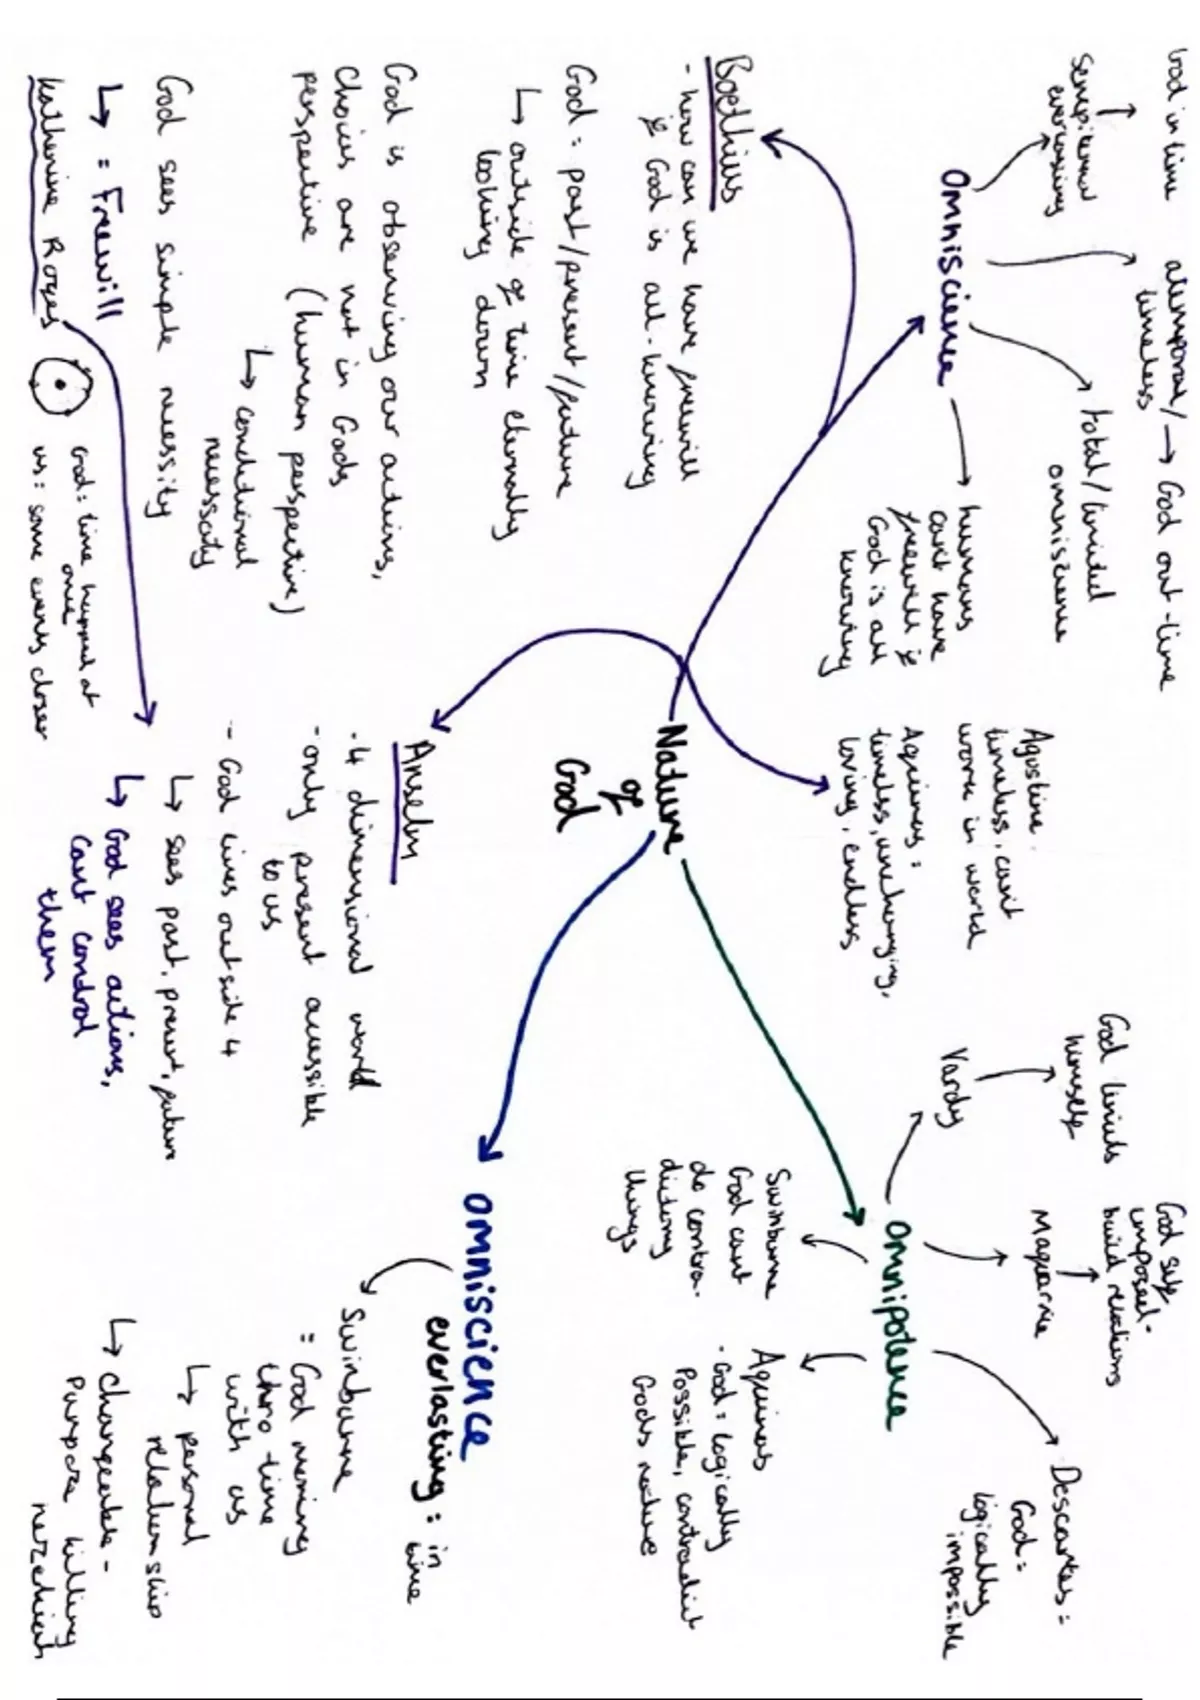 God in time
sempiternal
everlasting
atemporal/ → God out-time
timeless
Omniscience
total/limited
omniscience
humans
can't have
freewill if
God is all
knowing
Boethius
- how can we have freewill
if God is all-knowing
God: past/present/future
↳ outside of time eternally
looking down
God is observing our actions,
Choices are not in Gods
perspective (human perspective)
↳ conditional
necessity
God sees simple necessity
↳ = Freewill
Katherine Rogers
God: time happened at
once
us: some events closer
Nature
of
God
Agustine:
timeless, can't
work in world
Aquinas:
timeless, unchanging,
loving, endless
Anselm
- 4 dimensional world
- only present accessible
to us
- God lives outside 4
↳ sees past, present, future
↳ God sees actions,
Cant control
them
Omnipotence
Vardy
God limits
himself
Maquarrie
God self
imposed -
build relations
Descartes:
God =
logically
impossible
Swinburne
God cant
do contra-
dictory
things
Aquinas
- God = logically
Possible, contradict
Gods nature
OMNISCIENCE
everlasting: in
time
Swinburne
= God moving
thro time
with us
↳ personal
relationship
↳ changeable -
purpose killing